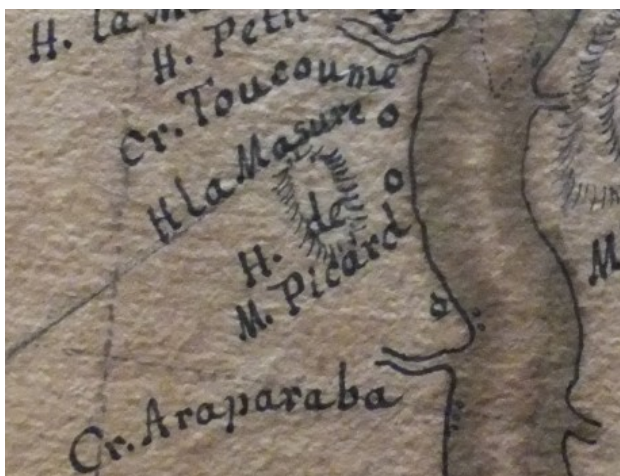 H. la
H. Petit
Cr. Toucoume
H la Masure
H. de
M. Picard
M
Cr. Araparaba